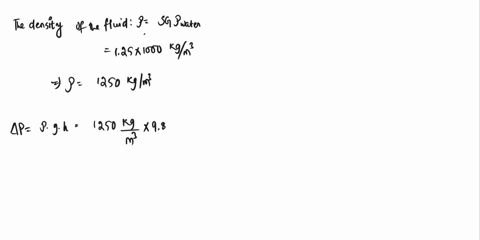 The density of the fluid: ρ = SG ρwater
= 1.25 × 1000 kg/m³
⇒ ρ = 1250 kg/m³
ΔP = ρ.g.h = 1250 kg/m³ × 9.8